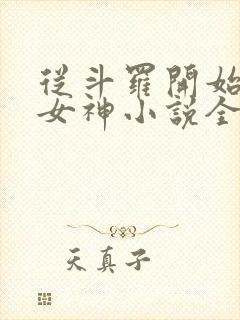 從斗羅開始
女神小說全
天真子